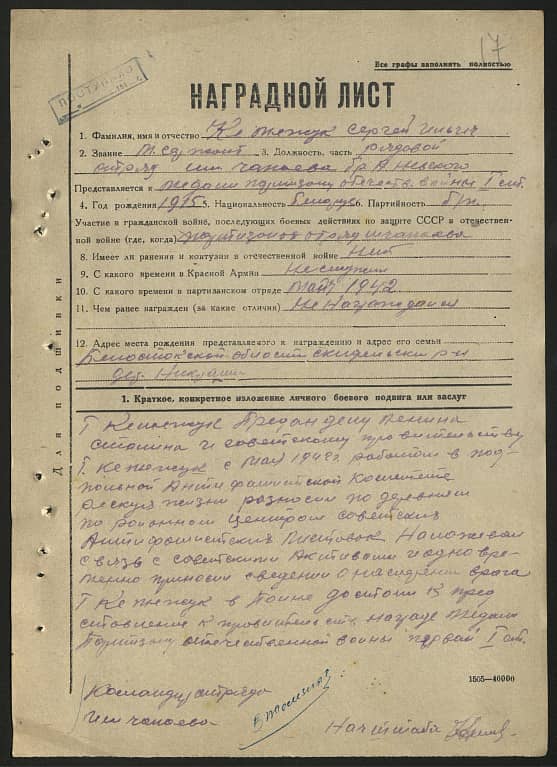 17
Все графы заполнять полностью
ПОСТУПИЛО
НАГРАДНОЙ ЛИСТ
1. Фамилия, имя и отчество Сергей Ильич
2. Звание 3. Должность, часть рядовой
отряд им чапаева бр.
Представляется к медали партизану отечеств. войны I ст.
4. Год рождения 1915 5. Национальность Белорус 6. Партийность б/п.
Участие в гражданской войне, последующих боевых действиях по защите СССР и отечествен-
ной войне (где, когда) отряд
8. Имеет ли ранения и контузии в отечественной войне Нет
9. С какого времени в Красной Армии Не служил
10. С какого времени в партизанском отряде 1942
11. Чем ранее награжден (за какие отличия) Не Награждался
12. Адрес места рождения представляемого к награждению и адрес его семьи
Белостокской области скидельский р-н
дер.
Для подшивки
1. Краткое, конкретное изложение личного боевого подвига или заслуг
Т Предан делу Ленина
сталина и советскому правительству
Т. с Мая работал в под-
польной Анти фашистской Комитете
рискуя жизни разносил по деревням
по районном центрам советских
Антифашистских Листовок Налаживал
связь с советскими Активами и одновре-
менно приносил сведении о наседении врага
Т в достоин К пред
ставлению к правительств. награде Медали
Партизану отечественной войны первой I ст.
1505—40000
Командир отряда
им чапаева
Нач штаба